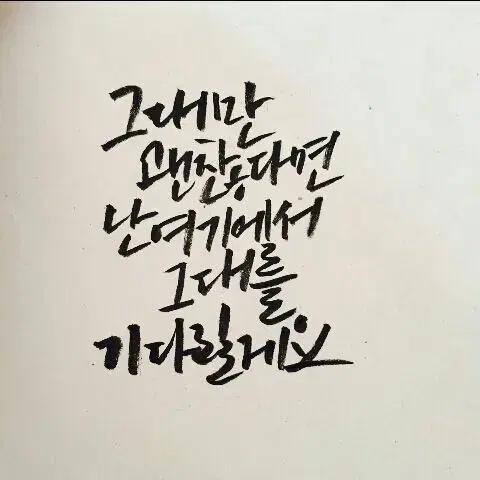 그대만
괜찮다면
난 여기에서
그대를
기다릴게요